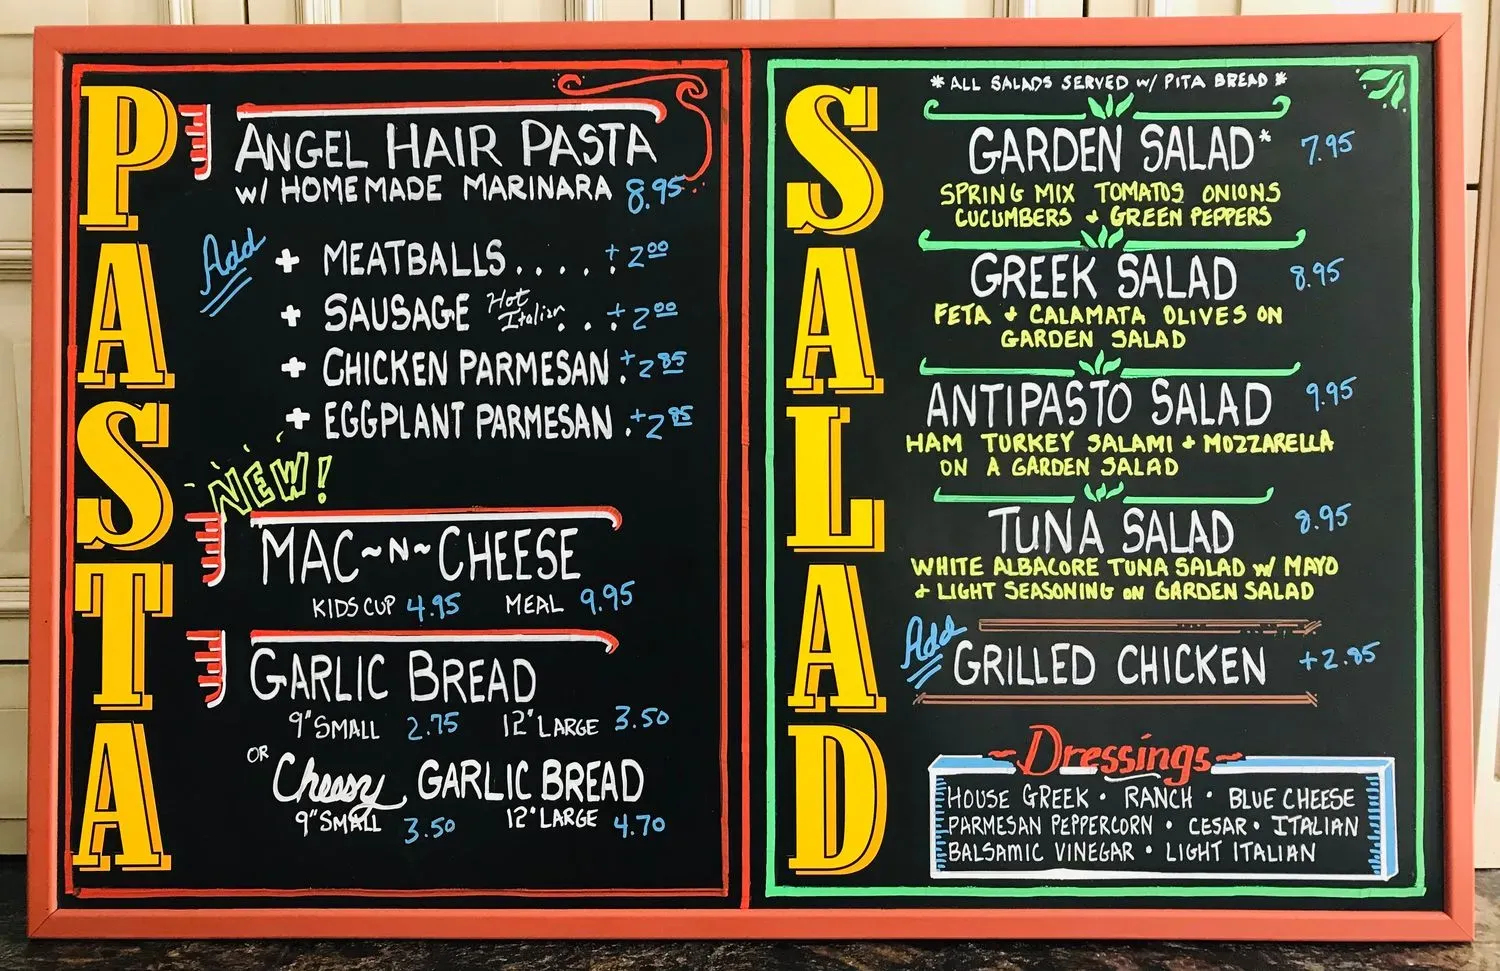 PASTA
ANGEL HAIR PASTA
W/ HOMEMADE MARINARA 8.95
Add
+ MEATBALLS.....+2.00
+ SAUSAGE Hot Italian...+2.00
+ CHICKEN PARMESAN .+2.85
+ EGGPLANT PARMESAN .+2.85
NEW!
MAC~N~CHEESE
KIDS CUP 4.95 MEAL 9.95
GARLIC BREAD
9" SMALL 2.75 12" LARGE 3.50
OR Cheesy GARLIC BREAD
9" SMALL 3.50 12" LARGE 4.70
SALAD
*ALL SALADS SERVED W/ PITA BREAD*
GARDEN SALAD* 7.95
SPRING MIX TOMATOS ONIONS
CUCUMBERS + GREEN PEPPERS
GREEK SALAD 8.95
FETA + CALAMATA OLIVES ON
GARDEN SALAD
ANTIPASTO SALAD 9.95
HAM TURKEY SALAMI + MOZZARELLA
ON A GARDEN SALAD
TUNA SALAD 8.95
WHITE ALBACORE TUNA SALAD W/ MAYO
+ LIGHT SEASONING ON GARDEN SALAD
Add
GRILLED CHICKEN +2.85
~Dressings~
HOUSE GREEK • RANCH • BLUE CHEESE
PARMESAN PEPPERCORN • CESAR • ITALIAN
BALSAMIC VINEGAR • LIGHT ITALIAN